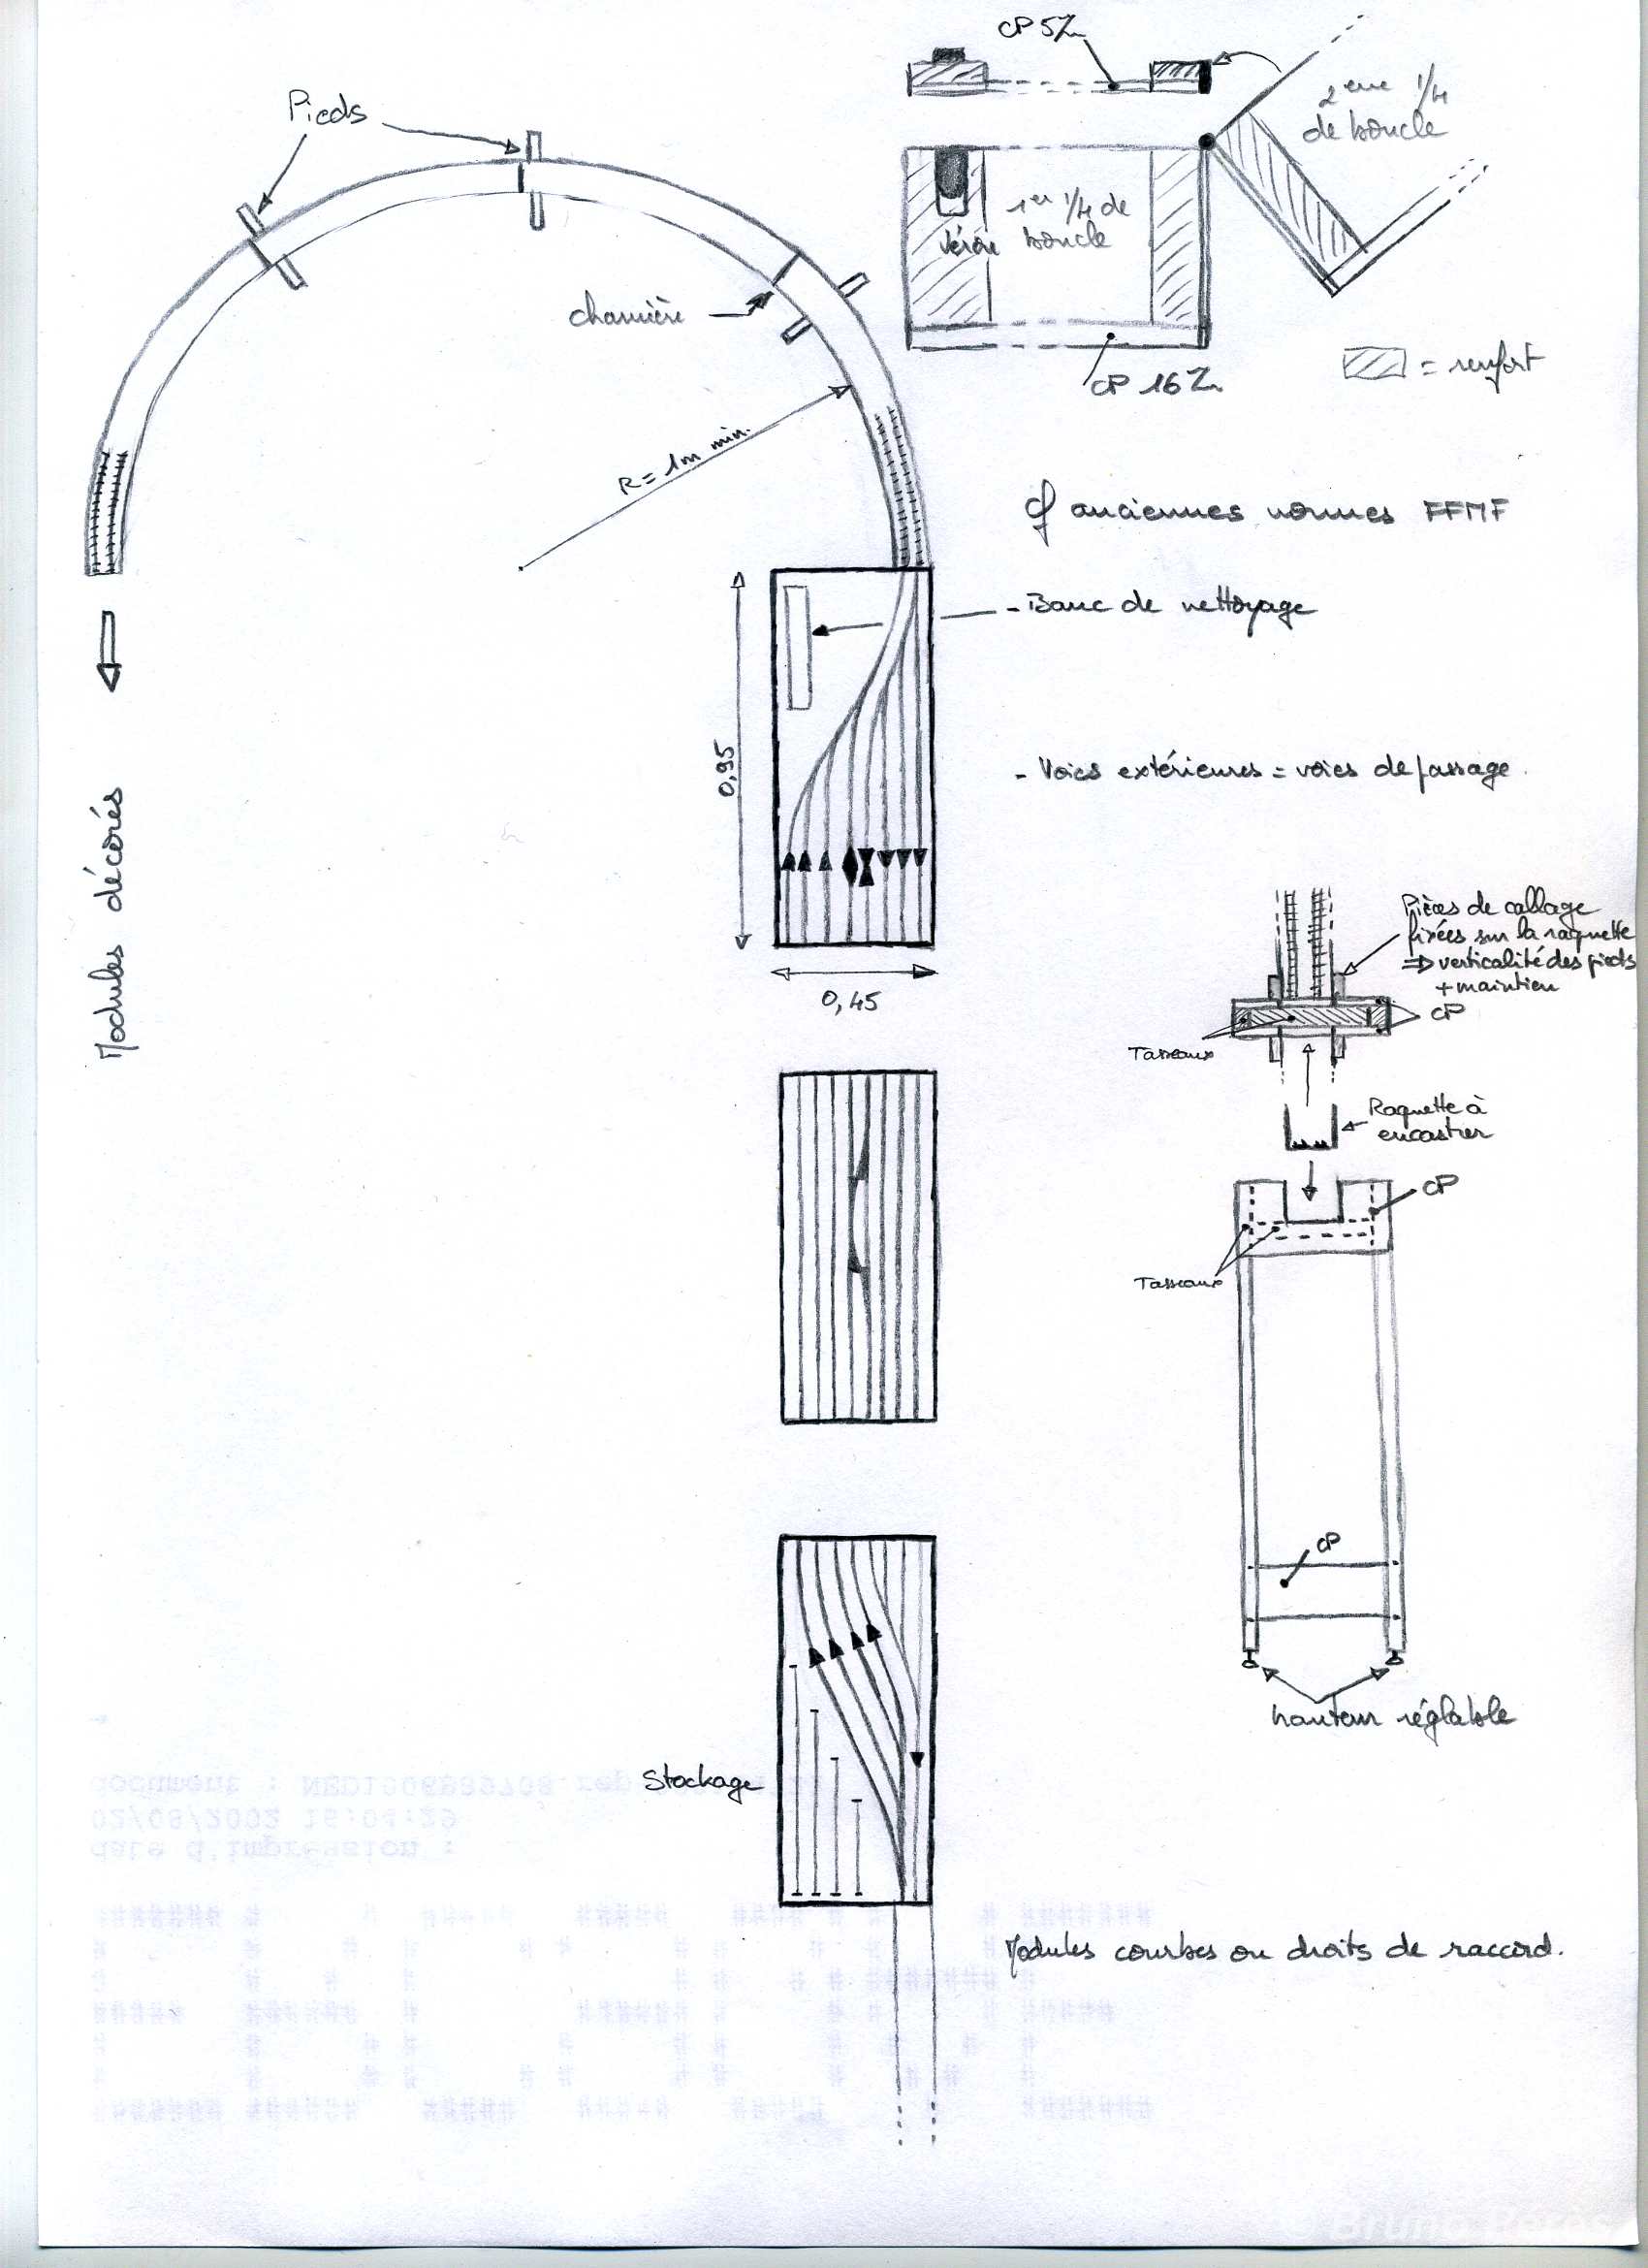 CP 5
Pieds
2ème 1/4
de boucle
1er 1/4 de
boucle
vérin
charnière
CP 16
= renfort
R = 1m min.
cf anciennes normes FFMF
- Banc de nettoyage
0,95
- Voies extérieures = voies de passage.
Modules décorés
Pièces de callage
fixées sur la raquette
=> verticalité des pieds
+ maintien
0,45
CP
Tasseaux
Raquette à
encastrer
CP
Tasseaux
CP
hauteur réglable
Stockage
document :
02/08/2002 16:04:29
date d'impression :
Modules courbes ou droits de raccord.